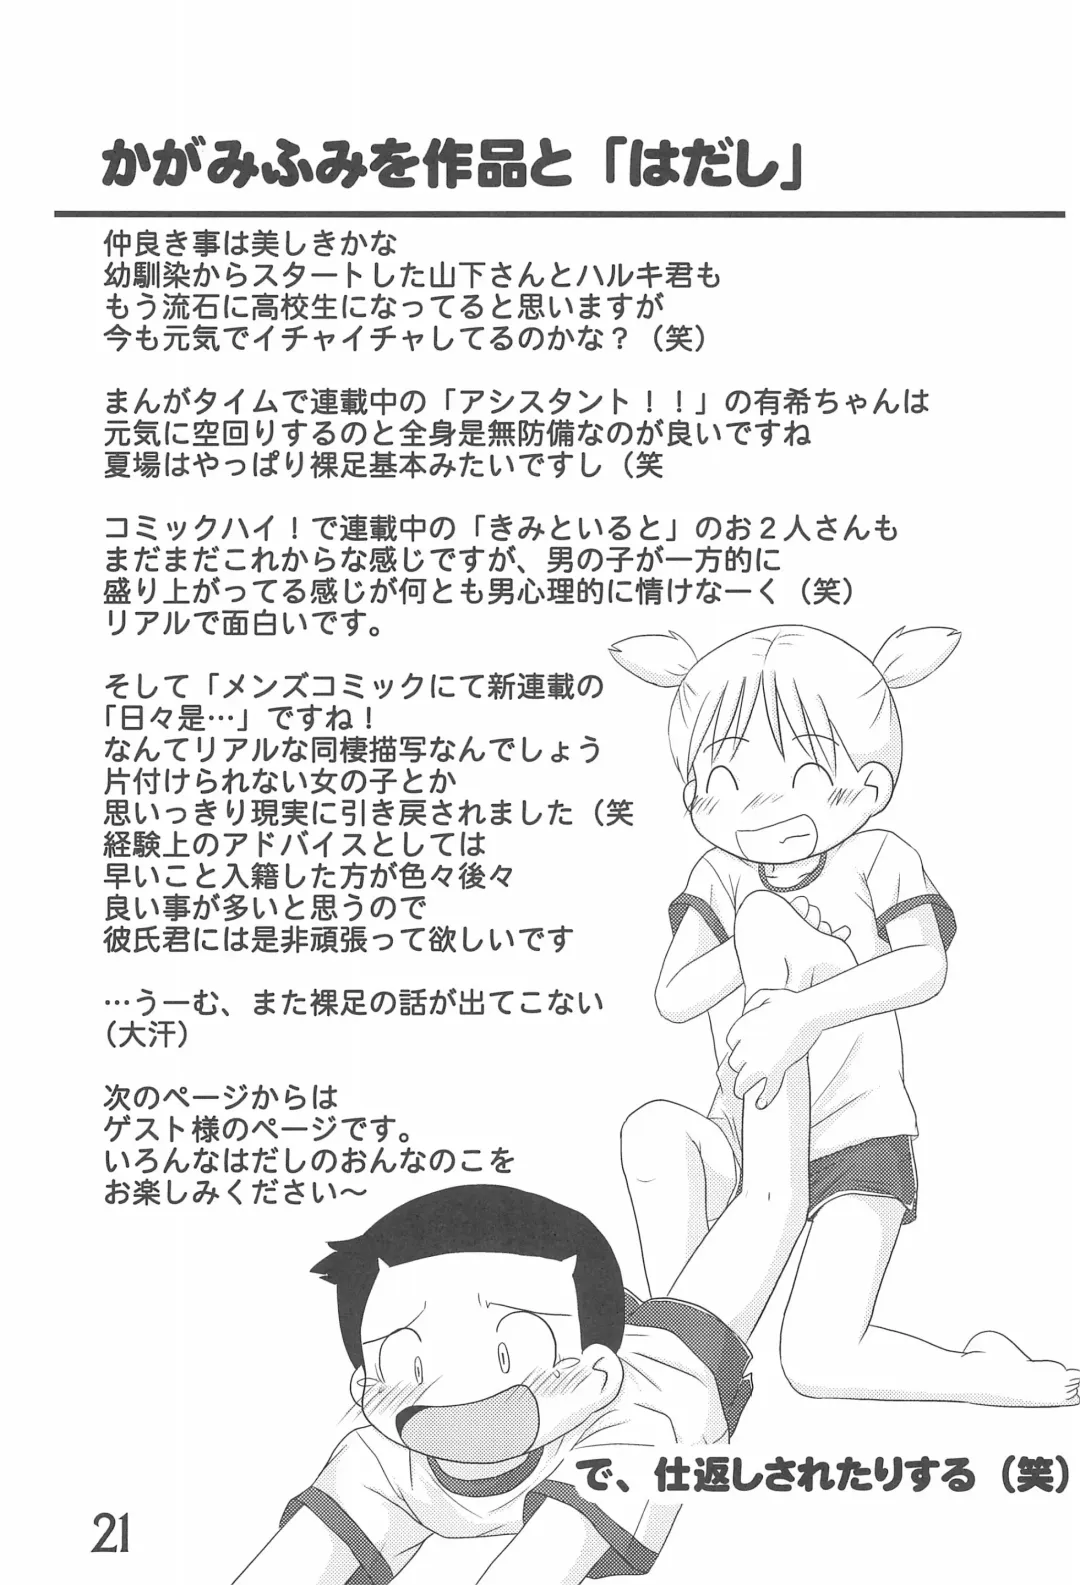 かがみふみを作品と「はだし」
仲良き事は美しきかな
幼馴染からスタートした山下さんとハルキ君も
もう流石に高校生になってると思いますが
今も元気でイチャイチャしてるのかな？（笑）
まんがタイムで連載中の「アシスタント！！」の有希ちゃんは
元気に空回りするのと全身是無防備なのが良いですね
夏場はやっぱり裸足基本みたいですし（笑
コミックハイ！で連載中の「きみといると」のお２人さんも
まだまだこれからな感じですが、男の子が一方的に
盛り上がってる感じが何とも男心理的に情けなーく（笑）
リアルで面白いです。
そして「メンズコミックにて新連載の
「日々是…」ですね！
なんてリアルな同棲描写なんでしょう
片付けられない女の子とか
思いっきり現実に引き戻されました（笑
経験上のアドバイスとしては
早いこと入籍した方が色々後々
良い事が多いと思うので
彼氏君には是非頑張って欲しいです
…うーむ、また裸足の話が出てこない
（大汗）
次のページからは
ゲスト様のページです。
いろんなはだしのおんなのこを
お楽しみください～
で、仕返しされたりする（笑）
21